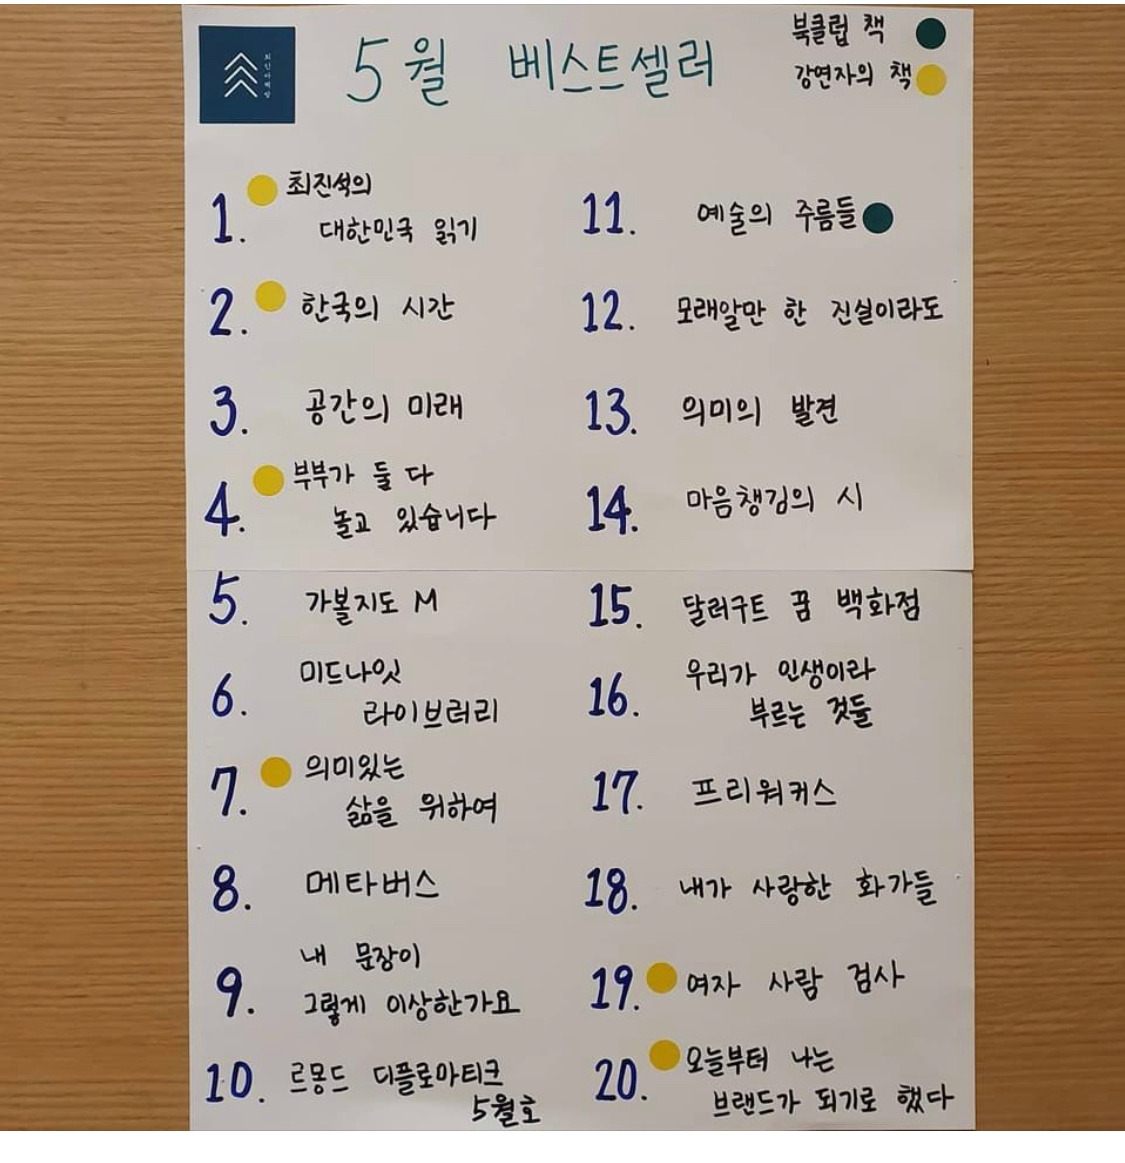 최인아책방
5월 베스트셀러
북클럽 책
강연자의 책
1. 최진석의
대한민국 읽기
2. 한국의 시간
3. 공간의 미래
4. 부부가 둘 다
놀고 있습니다
5. 가볼지도 M
6. 미드나잇
라이브러리
7. 의미있는
삶을 위하여
8. 메타버스
9. 내 문장이
그렇게 이상한가요
10. 르몽드 디플로마티크
5월호
11. 예술의 주름들
12. 모래알만 한 진실이라도
13. 의미의 발견
14. 마음챙김의 시
15. 달러구트 꿈 백화점
16. 우리가 인생이라
부르는 것들
17. 프리워커스
18. 내가 사랑한 화가들
19. 여자 사람 검사
20. 오늘부터 나는
브랜드가 되기로 했다